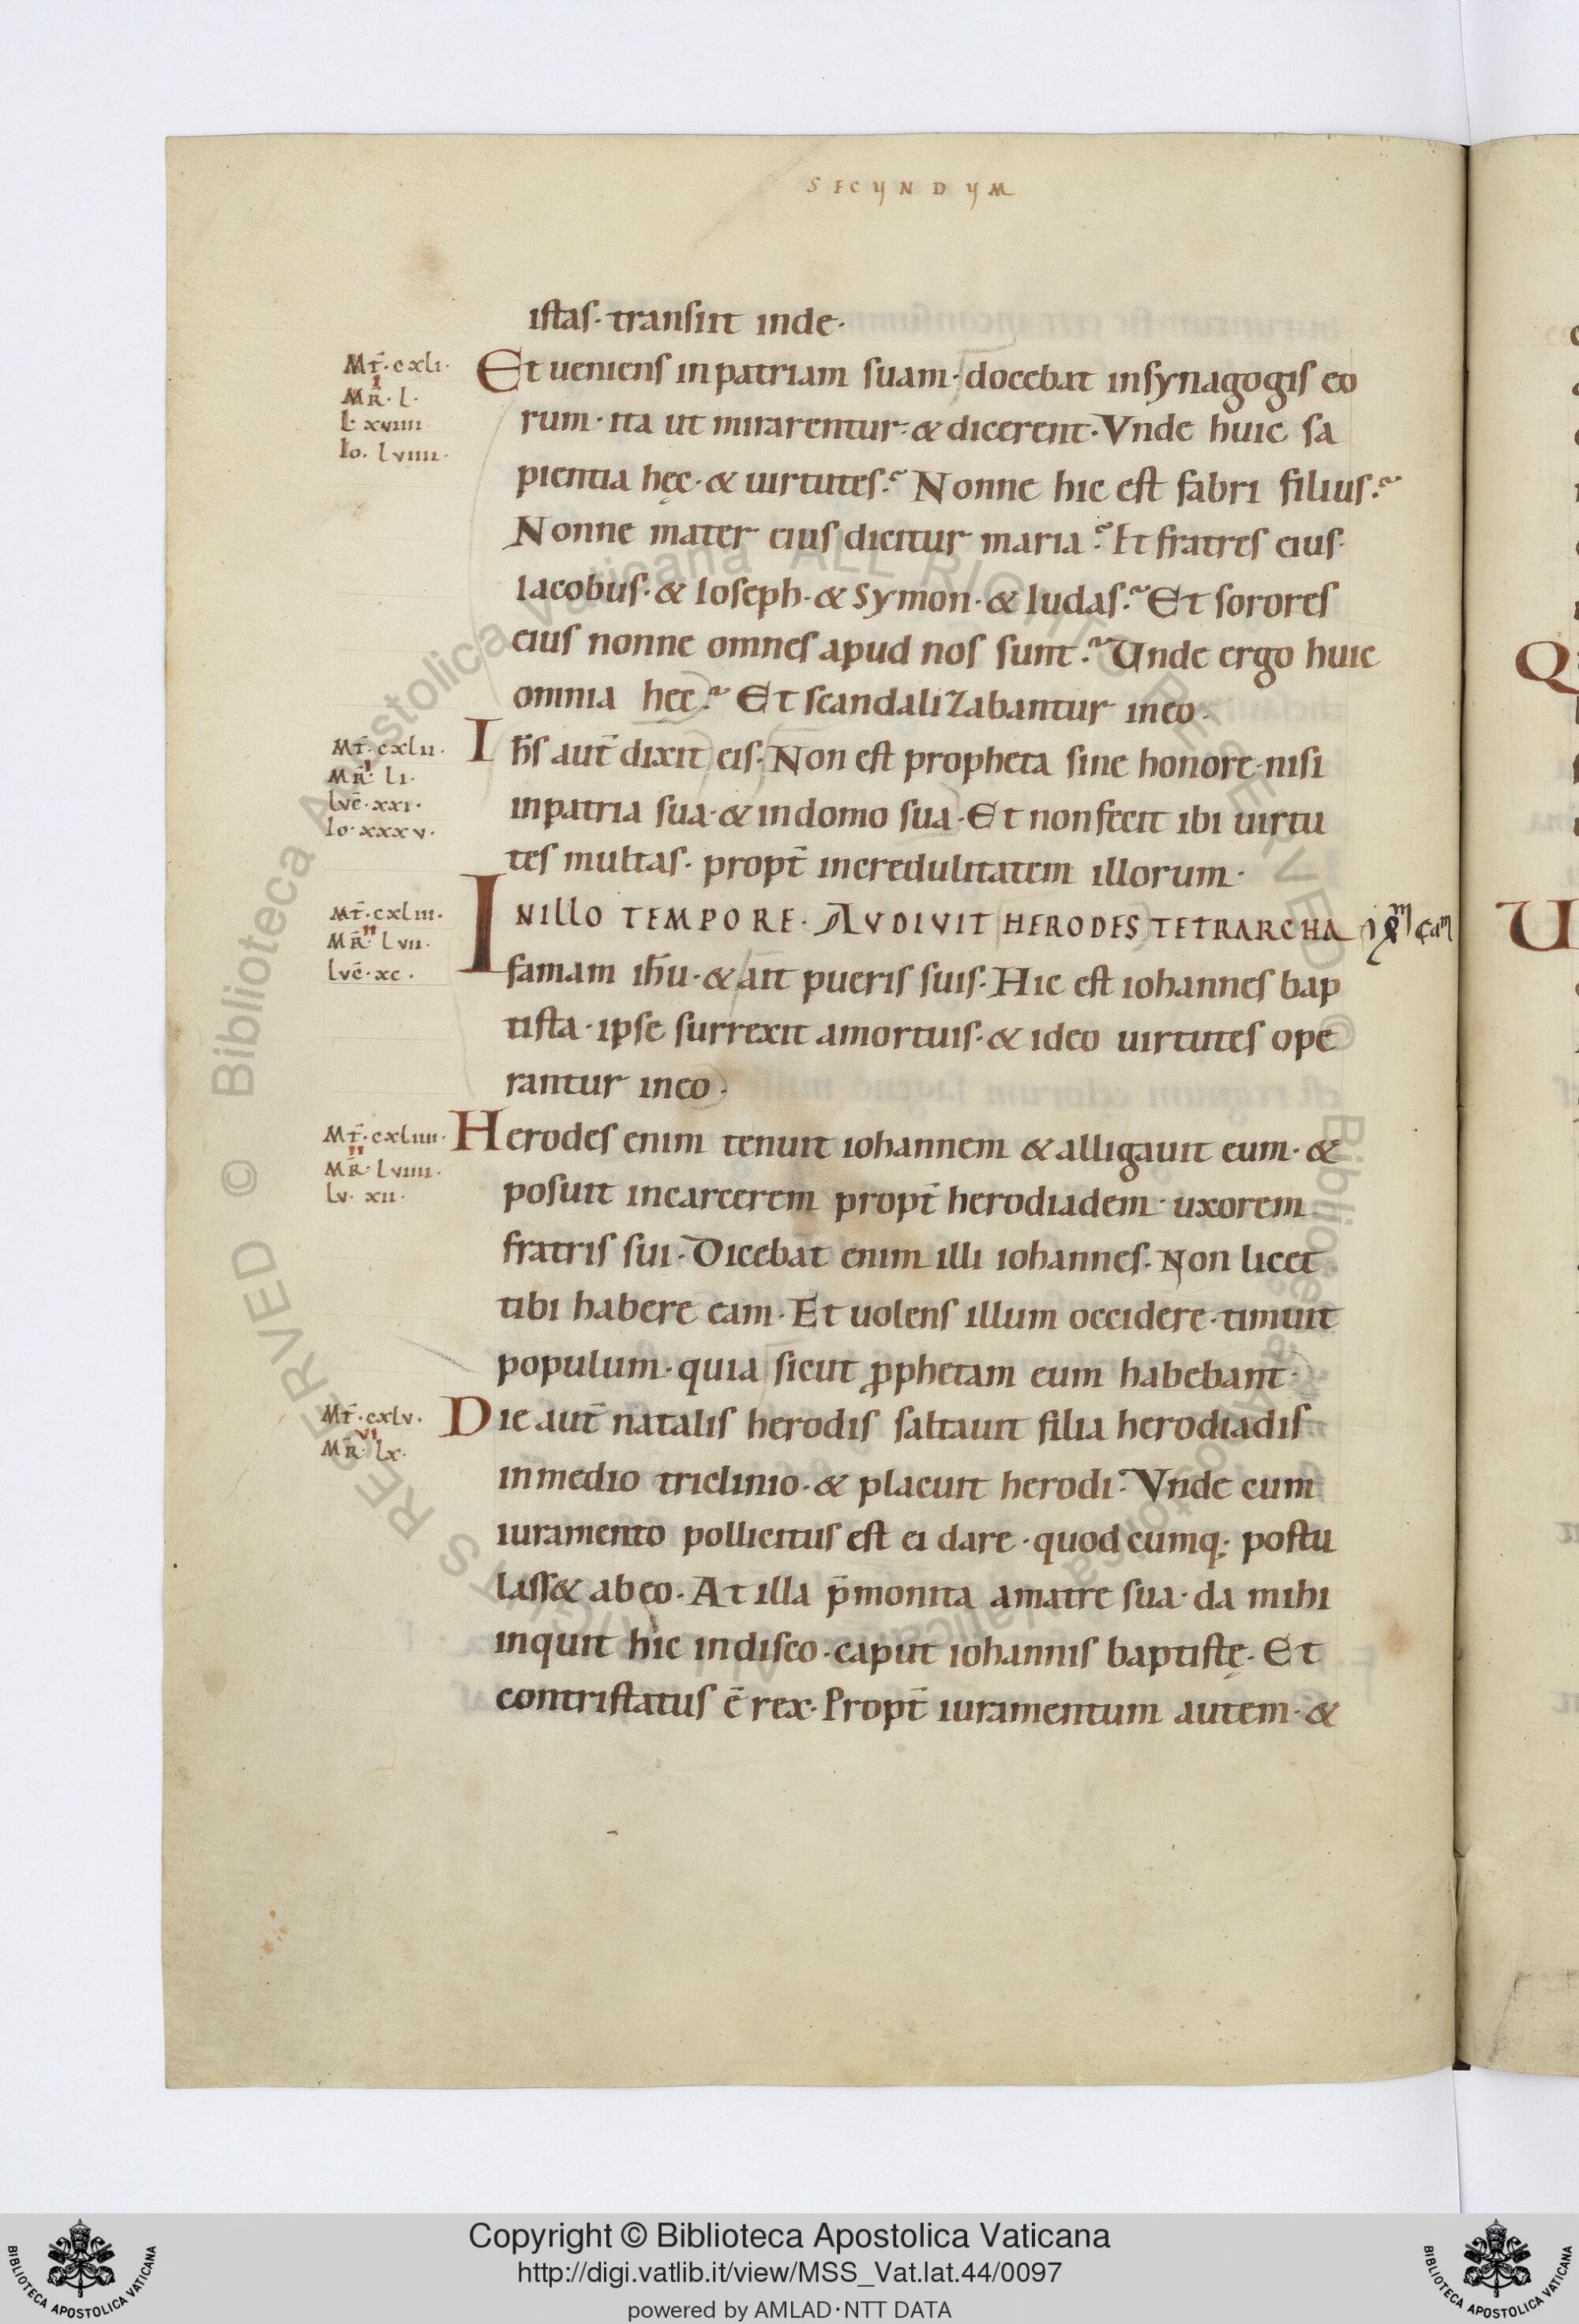 SECYNDYM
istas· transiit inde·
Mt̄·cxli·
I
MR̄·l·
L·xviiii·
Io·lviiii·
Et ueniens in patriam suam· docebat in synagogis eo
rum· ita ut mirarentur· & dicerent· Vnde huic sa
pientia hęc· & uirtutes? Nonne hic est fabri filius?
Nonne mater eius dicitur maria? Et fratres eius·
Iacobus· & Ioseph· & Symon· & Iudas? Et sorores
eius nonne omnes apud nos sunt? Unde ergo huic
omnia hec? Et scandalizabantur in eo·
Mt̄·cxlii·
I
MR̄·li·
lvc̄·xxi·
Io·xxxv·
Ih̄s aut̄ dixit eis· Non est propheta sine honore· nisi
in patria sua· & in domo sua· Et non fecit ibi uirtu
tes multas· propt̄ incredulitatem illorum·
Mt̄·cxliii·
II
MR̄·lvii·
lvc̄·xc·
IN ILLO TEMPORE· AVDIVIT HERODES TETRARCHA
famam ih̄u· & ait pueris suis· Hic est iohannes bap
tista· ipse surrexit a mortuis· & ideo uirtutes ope
rantur in eo·
Mt̄·cxliiii·
II
MR̄·lviiii·
lv·xii·
Herodes enim tenuit iohannem & alligauit eum· &
posuit in carcerem propt̄ herodiadem· uxorem
fratris sui· Dicebat enim illi iohannes· Non licet
tibi habere eam· Et uolens illum occidere· timuit
populum· quia sicut ꝓphetam eum habebant·
Mt̄·cxlv·
VI
MR̄·lx·
Die aut̄ natalis herodis saltauit filia herodiadis
in medio triclinio· & placuit herodi· Vnde cum
iuramento pollicitus est ei dare· quodcumq; postu
lass& ab eo· At illa p̄monita a matre sua· da mihi
inquit hic in disco· caput iohannis baptistę· Et
contristatus ē rex· Propt̄ iuramentum autem· &
© Biblioteca Apostolica Vaticana ALL RIGHTS RESERVED
© Biblioteca Apostolica Vaticana ALL RIGHTS RESERVED
Copyright © Biblioteca Apostolica Vaticana
http://digi.vatlib.it/view/MSS_Vat.lat.44/0097
powered by AMLAD·NTT DATA
BIBLIOTECA APOSTOLICA VATICANA
BIBLIOTECA APOSTOLICA VATICANA